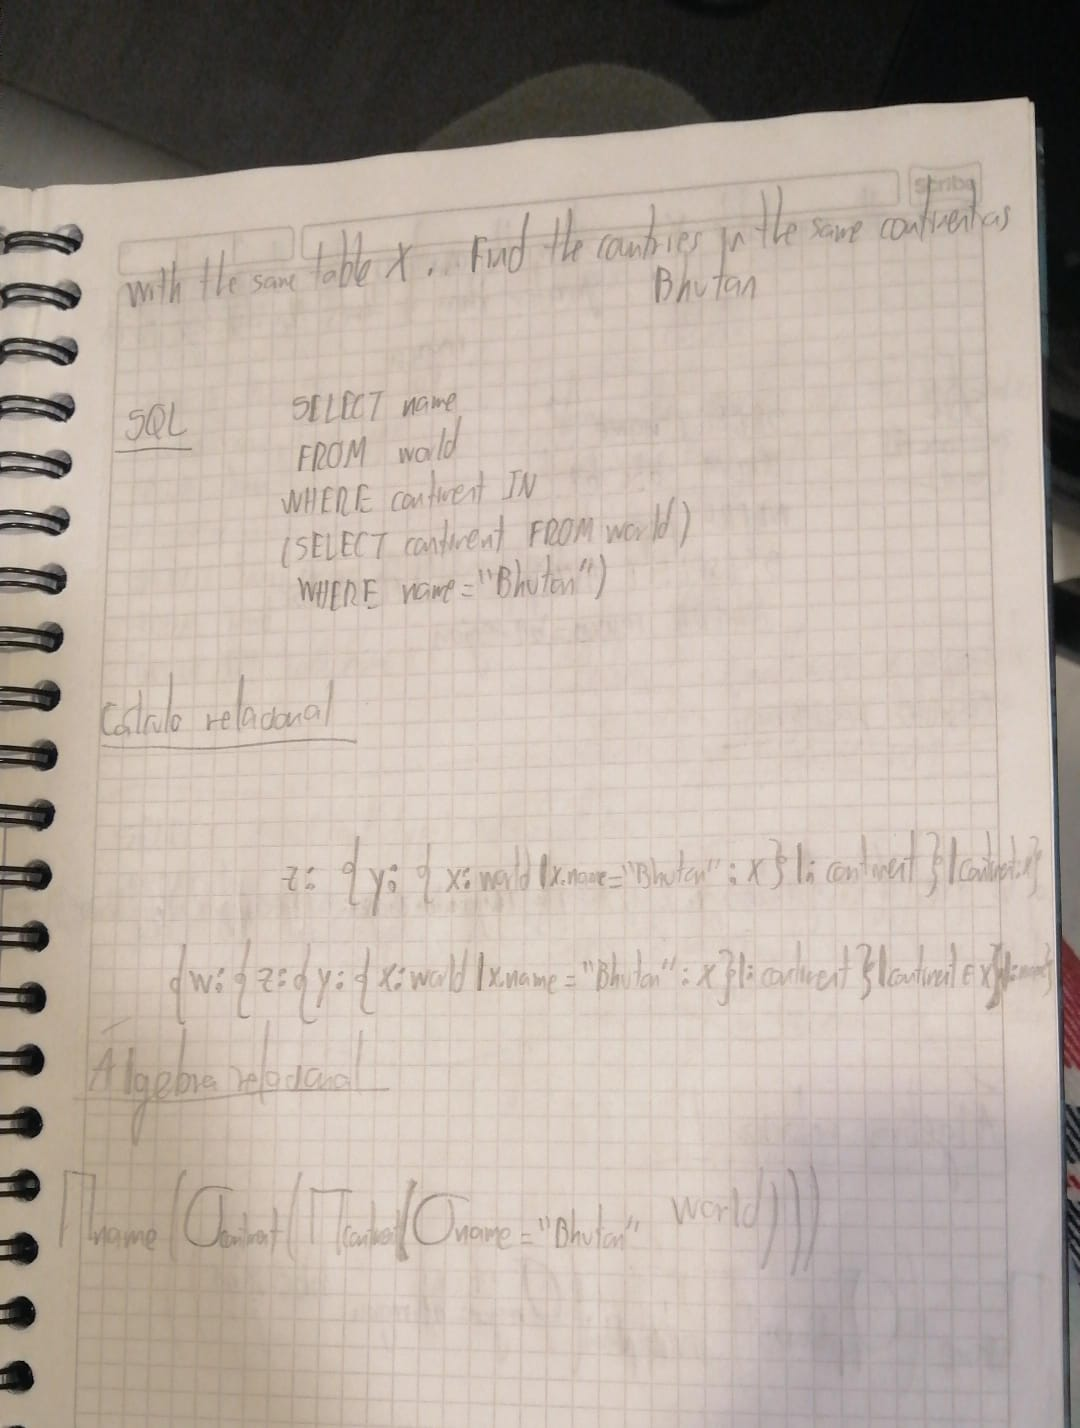 Scribe
with the same table X... Find the countries in the same continent as
Bhutan
SQL
SELECT name
FROM world
WHERE continent IN
(SELECT continent FROM world)
WHERE name="Bhutan")
Cálculo relacional
z: {y: {x: world | x.name="Bhutan" : x}|: continent}|
{w: {z: {y: {x: world | x.name = "Bhutan" : x}|: continent}|continent ∈ x}|: name}
Álgebra relacional
Πname(σcontinent(Πcontinent(σname="Bhutan" world))))